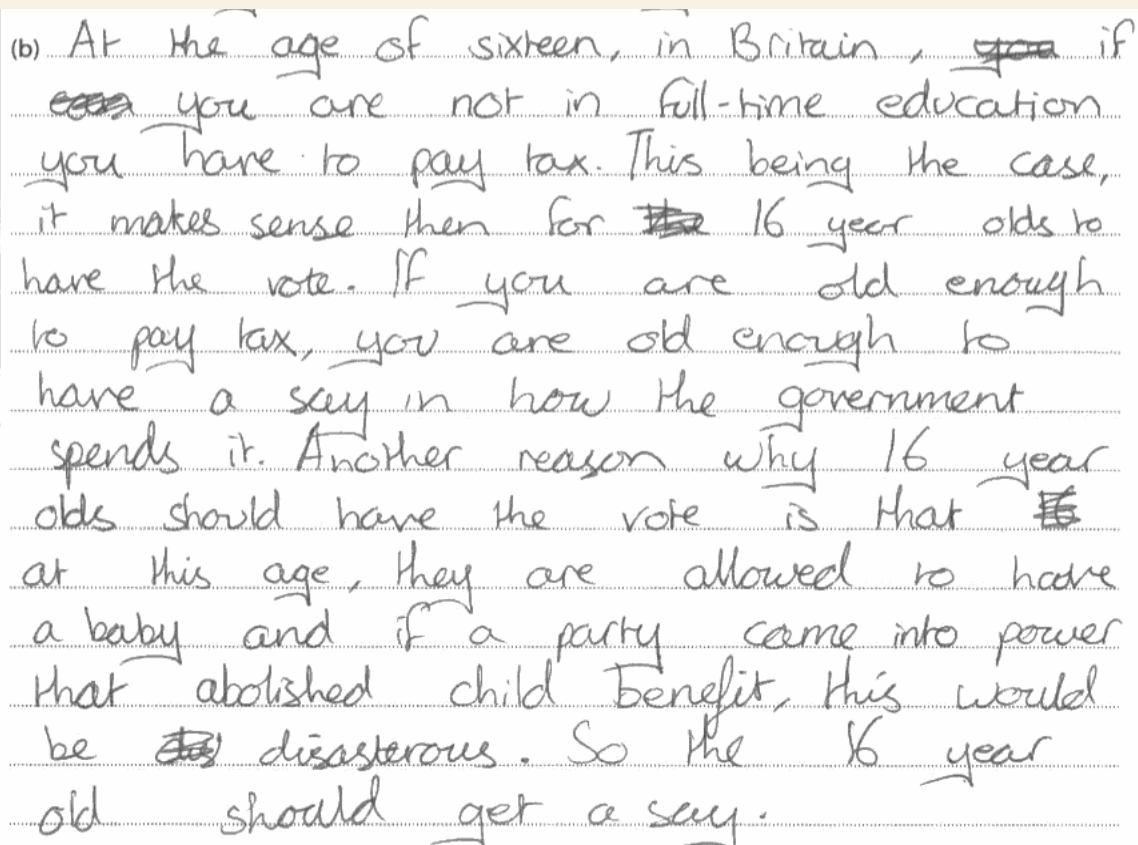 (b) At the age of sixteen, in Britain, if
you are not in full-time education
you have to pay tax. This being the case,
it makes sense then for 16 year olds to
have the vote. If you are old enough
to pay tax, you are old enough to
have a say in how the government
spends it. Another reason why 16 year
olds should have the vote is that
at this age, they are allowed to have
a baby and if a party came into power
that abolished child benefit, this would
be disasterous. So the 16 year
old should get a say.